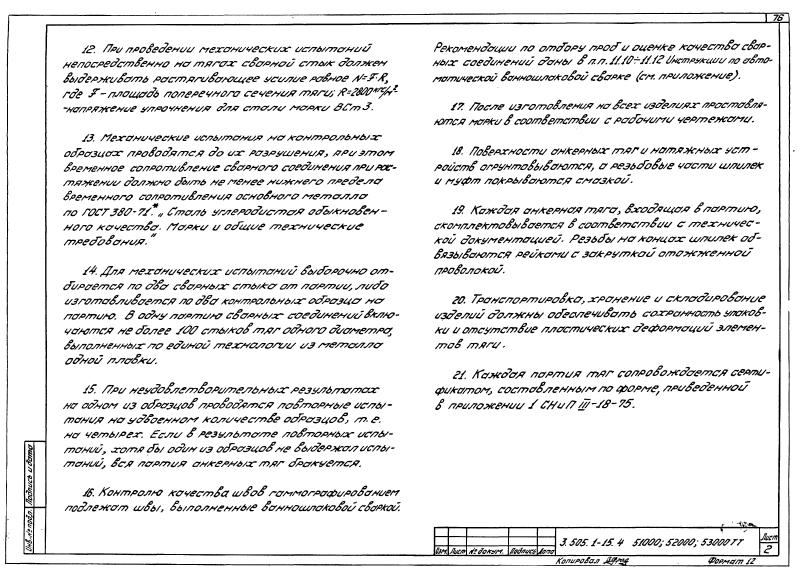 76
12. При проведении механических испытаний
непосредственно на тягах сварной стык должен
выдерживать растягивающее усилие равное N=F·R,
где F - площадь поперечного сечения тяги; R=2800 кгс/м²-
-напряжение упрочнения для стали марки ВСт 3.
13. Механические испытания на контрольных
образцах проводятся до их разрушения, при этом
временное сопротивление сварного соединения при рас-
тяжении должно быть не менее нижнего предела
временного сопротивления основного металла
по ГОСТ 380-71* „Сталь углеродистая обыкновен-
ного качества. Марки и общие технические
требования."
14. Для механических испытаний выборочно от-
бирается по два сварных стыка от партии, либо
изготавливается по два контрольных образца на
партию. В одну партию сварных соединений вклю-
чаются не более 100 стыков тяг одного диаметра,
выполненных по единой технологии из металла
одной плавки.
15. При неудовлетворительных результатах
на одном из образцов проводятся повторные испы-
тания на удвоенном количестве образцов, т.е.
на четырех. Если в результате повторных испы-
таний, хотя бы один из образцов не выдержал испы-
таний, вся партия анкерных тяг бракуется.
16. Контролю качества швов гаммографированием
подлежат швы, выполненные ванношлаковой сваркой.
Рекомендации по отбору проб и оценке качества свар-
ных соединений даны в п.п. 11.10÷11.12 Инструкции по авто-
матической ванношлаковой сварке (см. приложение).
17. После изготовления на всех изделиях проставля-
ются марки в соответствии с рабочими чертежами.
18. Поверхности анкерных тяг и натяжных уст-
ройств огрунтовываются, а резьбовые части шпилек
и муфт покрываются смазкой.
19. Каждая анкерная тяга, входящая в партию,
скомплектовывается в соответствии с техничес-
кой документацией. Резьбы на концах шпилек об-
вязываются рейками с закруткой отожженной
проволокой.
20. Транспортировка, хранение и складирование
изделий должны обеспечивать сохранность упаков-
ки и отсутствие пластических деформаций элемен-
тов тяги.
21. Каждая партия тяг сопровождается серти-
фикатом, составленным по форме, приведенной
в приложении 1 СНиП III-18-75.
Инв.№ подл. Подпись и дата
Изм. Лист № докум. Подпись Дата
3.505.1-15.4 51000; 52000; 53000 ТТ
Лист
2
Копировал
Формат 12